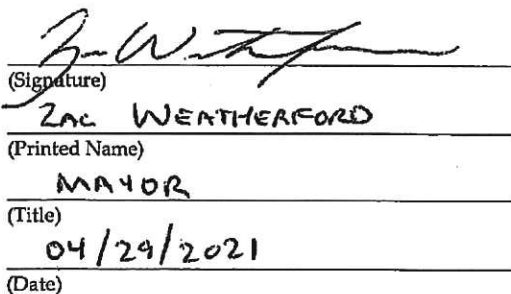 Zac Weatherford
(Signature)
ZAC WEATHERFORD
(Printed Name)
MAYOR
(Title)
04/29/2021
(Date)